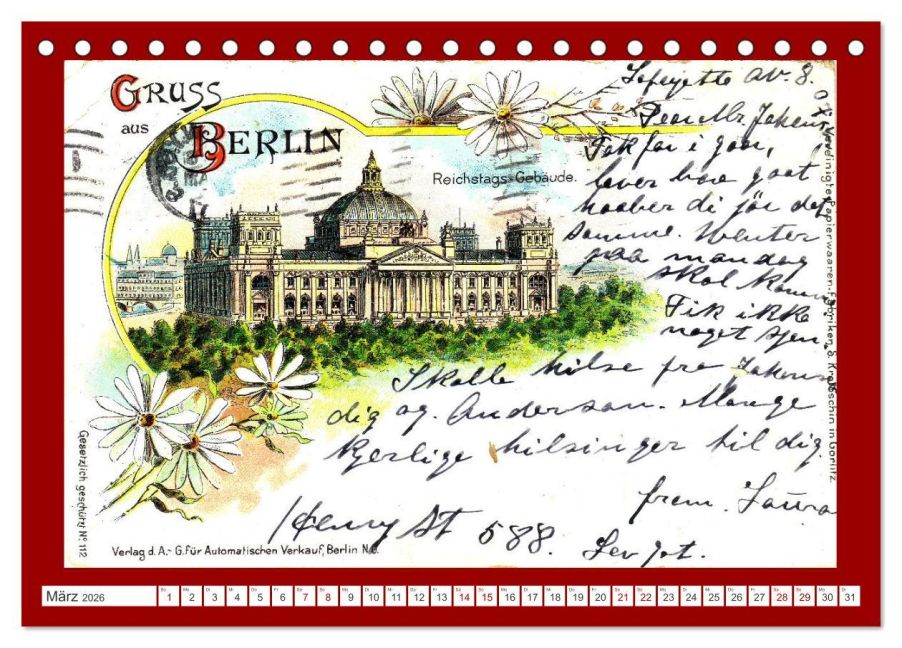 GRUSS
aus
BERLIN
Reichstags-Gebäude.
Lafayette av. 8.
Dear Mr. Jakens
Tak for i gaar,
lever bare goat
haaber di jör det
samme. Venter
paa mandag
skal komme
Fik ikke
noget
Skulle hilse fra Jakens
dig og. Anderson. Mange
kjerlige hilsinger til dig
from. Laura
Henry St 588.
Gesetzlich geschürzt No 112
Verlag d. A.-G. für Automatischen Verkauf, Berlin N.O.
Vereinigte Papierwaaren-Fabriken S. Krotoschin in Görlitz.
März 2026
So 1 Mo 2 Di 3 Mi 4 Do 5 Fr 6 Sa 7 So 8 Mo 9 Di 10 Mi 11 Do 12 Fr 13 Sa 14 So 15 Mo 16 Di 17 Mi 18 Do 19 Fr 20 Sa 21 So 22 Mo 23 Di 24 Mi 25 Do 26 Fr 27 Sa 28 So 29 Mo 30 Di 31